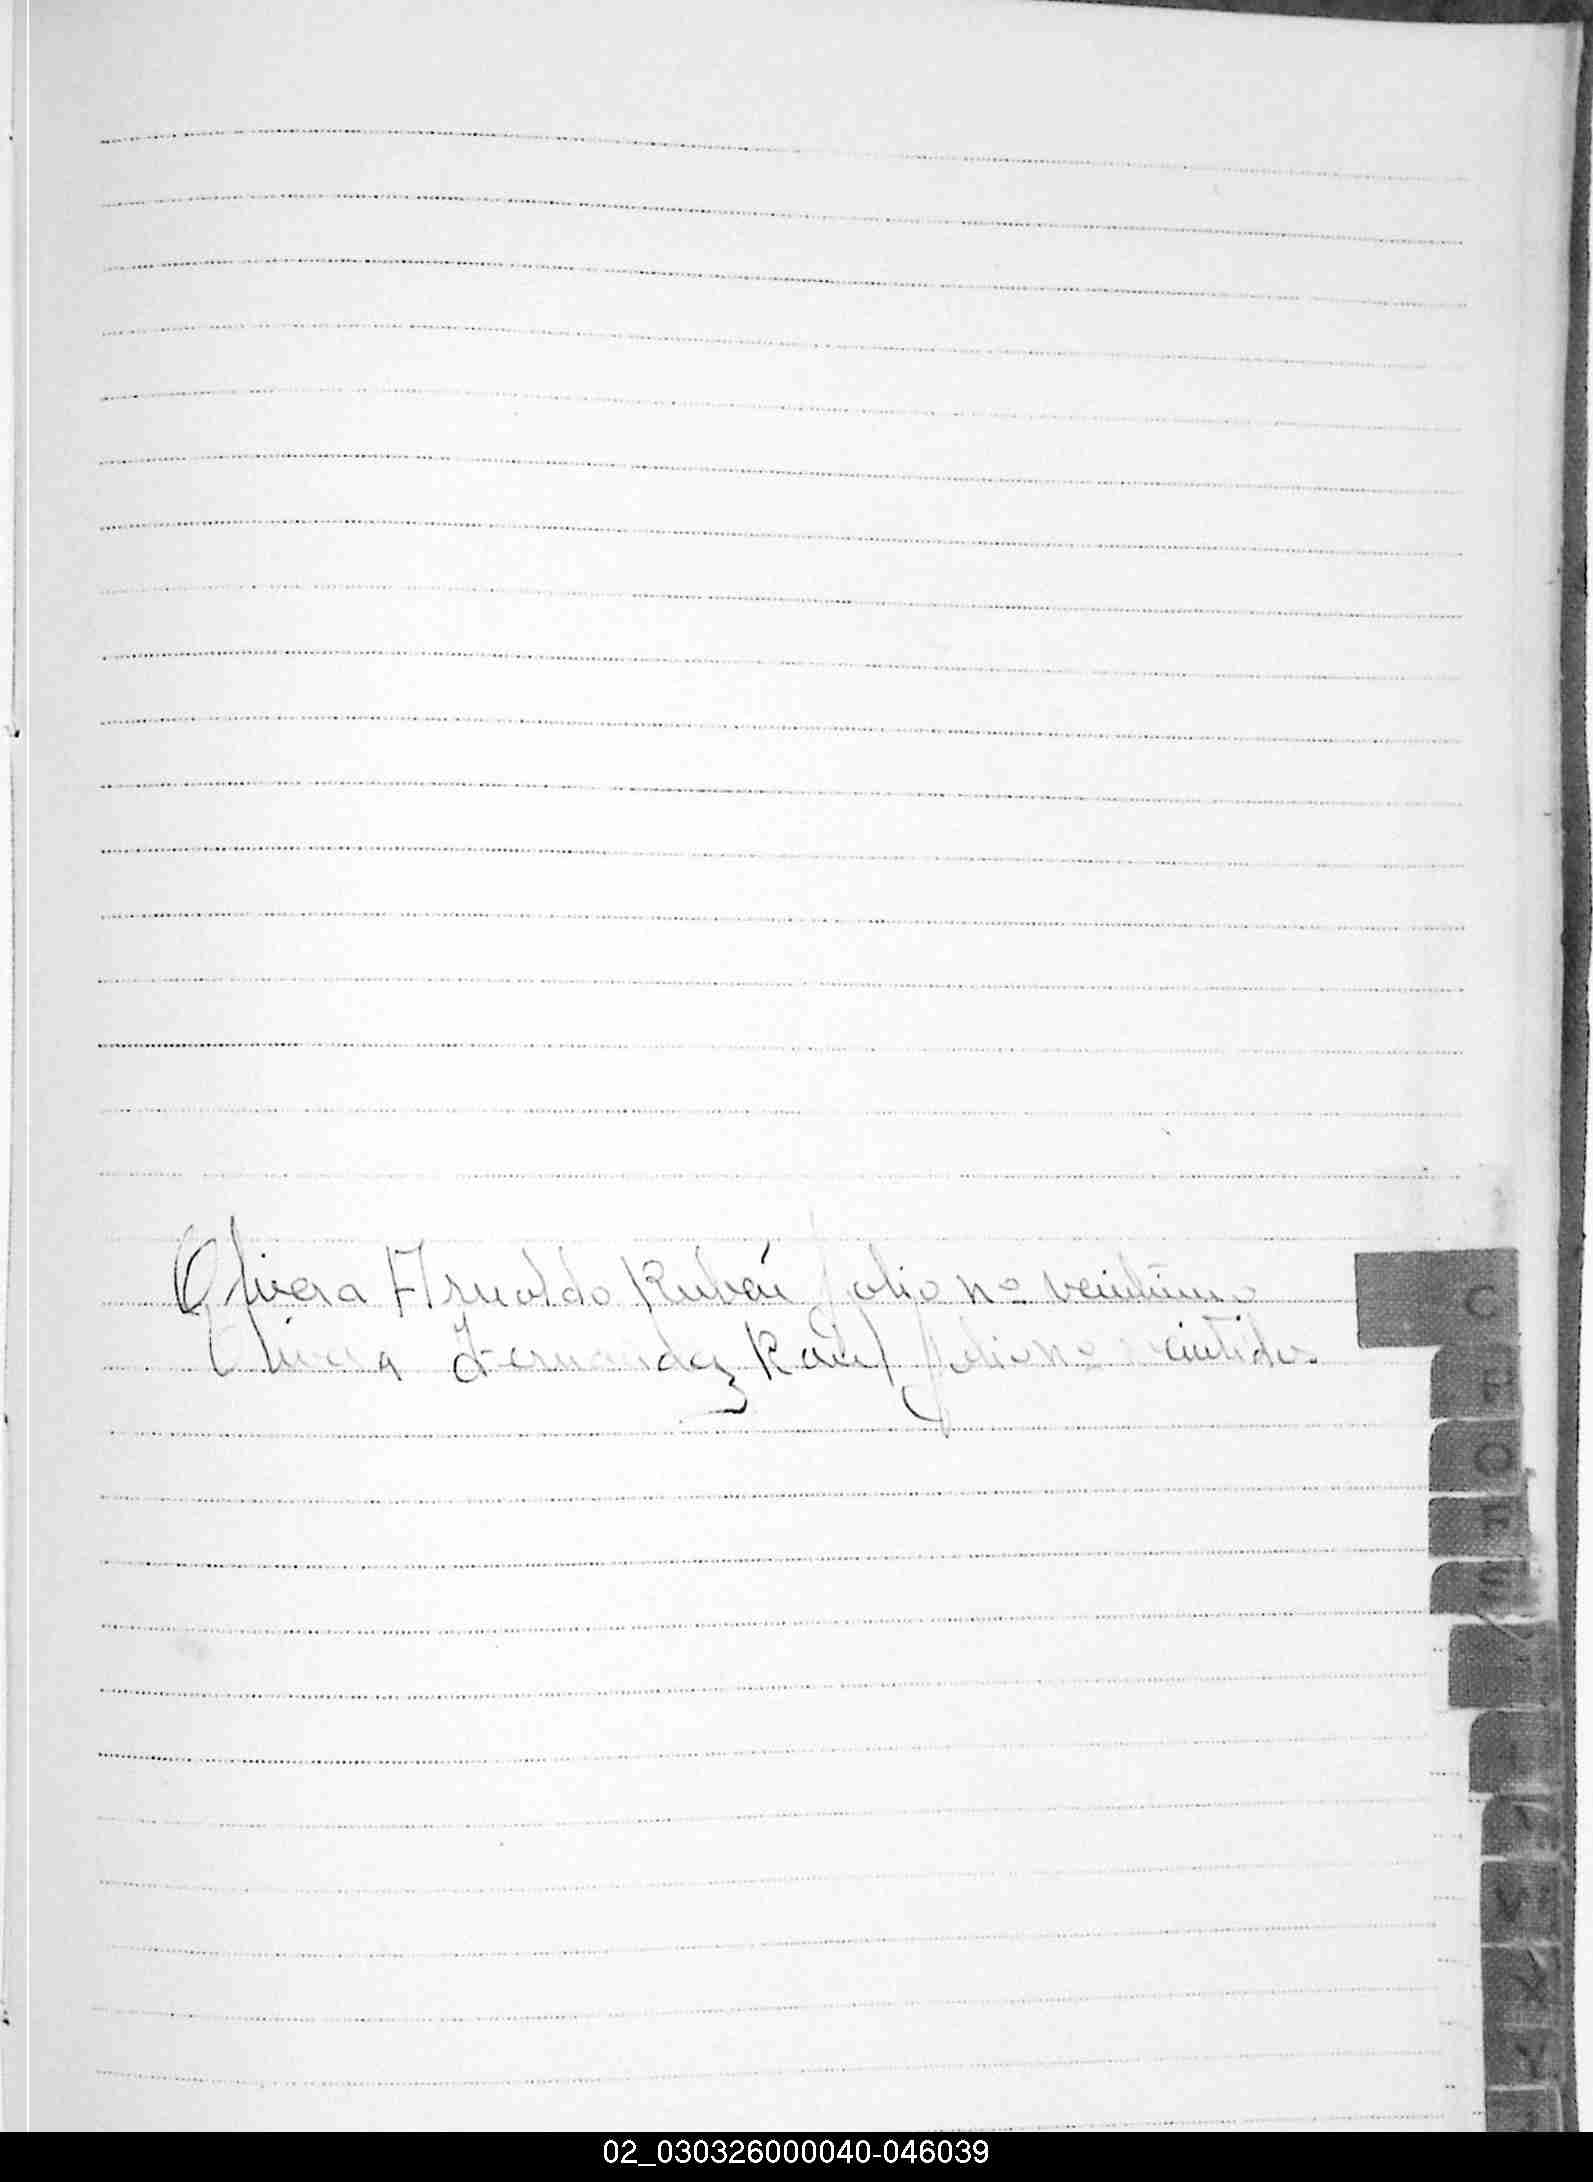 Olivera Arnoldo Rubén folio nº veintiuno
Olivera Fernandez Raúl folio nº veintidos
C
P
Q
R
S
V
X
Y
02_030326000040-046039